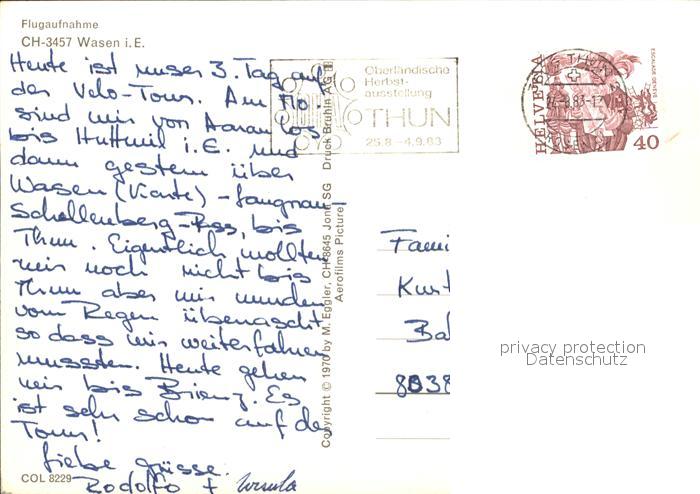 Flugaufnahme
CH-3457 Wasen i.E.
Heute ist unser 3. Tag auf
der Velo-Tour. Am Mo.
sind wir von Aarau los
bis Huttwil i. E. und
dann gestern über
Wasen (Karte) - Langnau
Schallenberg-Pass, bis
Thun. Eigentlich wollten
wir noch nicht bis
Thun aber wir wurden
vom Regen überrascht
so dass wir weiterfahren
mussten. Heute gehen
wir bis Brienz. Es
ist sehr schön auf der
Tour!
Liebe Grüsse.
Rodolfo + Ursula
COL 8229
Copyright © 1970 by M. Eggler, CH-8645 Jona SG Druck Bruhin AG
Aerofilms Picture
Oberländische
Herbst-
ausstellung
THUN
25.8.-4.9.83
THUN
HELVETIA
ESCALADE GENÈVE
40
Fami
Kurt
Ba
8038
privacy protection
Datenschutz